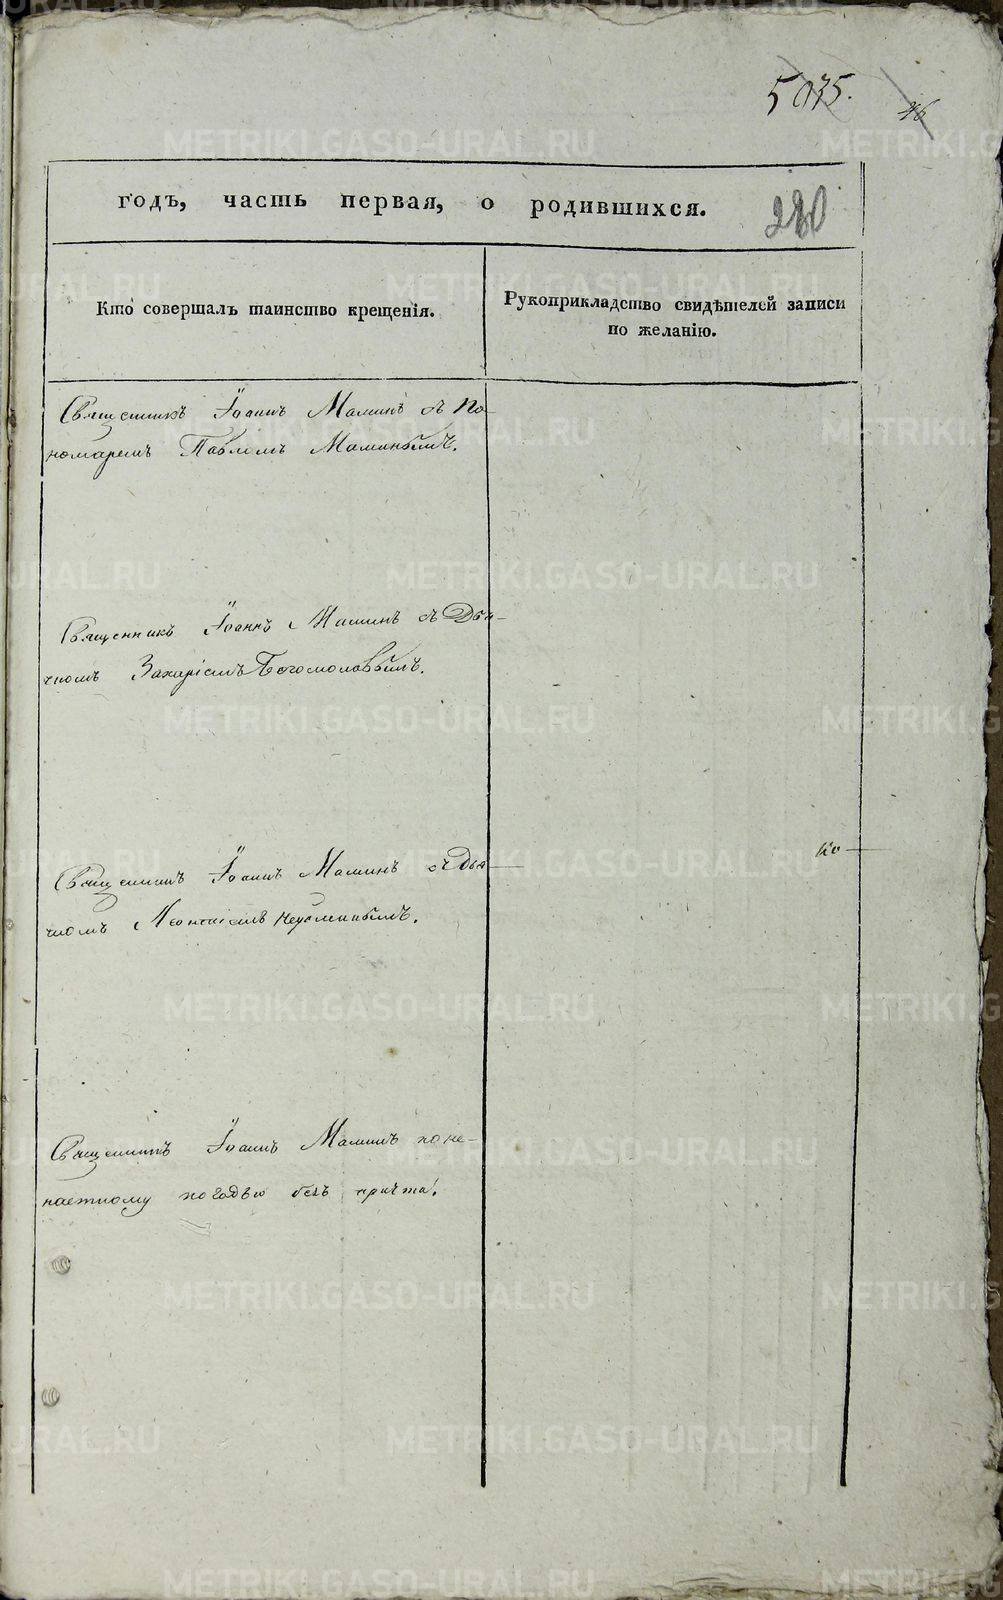 5035.
46
годъ, часть первая, о родившихся.
280
Кто совершалъ таинство крещенія.
Рукоприкладство свидѣтелей записи
по желанію.
Священникъ Іоаннъ Маминъ съ По-
номаремъ Павломъ Маминымъ.
Священникъ Іоаннъ Маминъ съ Дья-
чкомъ Захаріемъ Богомоловымъ.
Священникъ Іоаннъ Маминъ съ Дья-
чкомъ Леонтіемъ
Ко
Священникъ Іоаннъ Маминъ по не-
настному погодью безъ причта.
METRIKI.GASO-URAL.RU